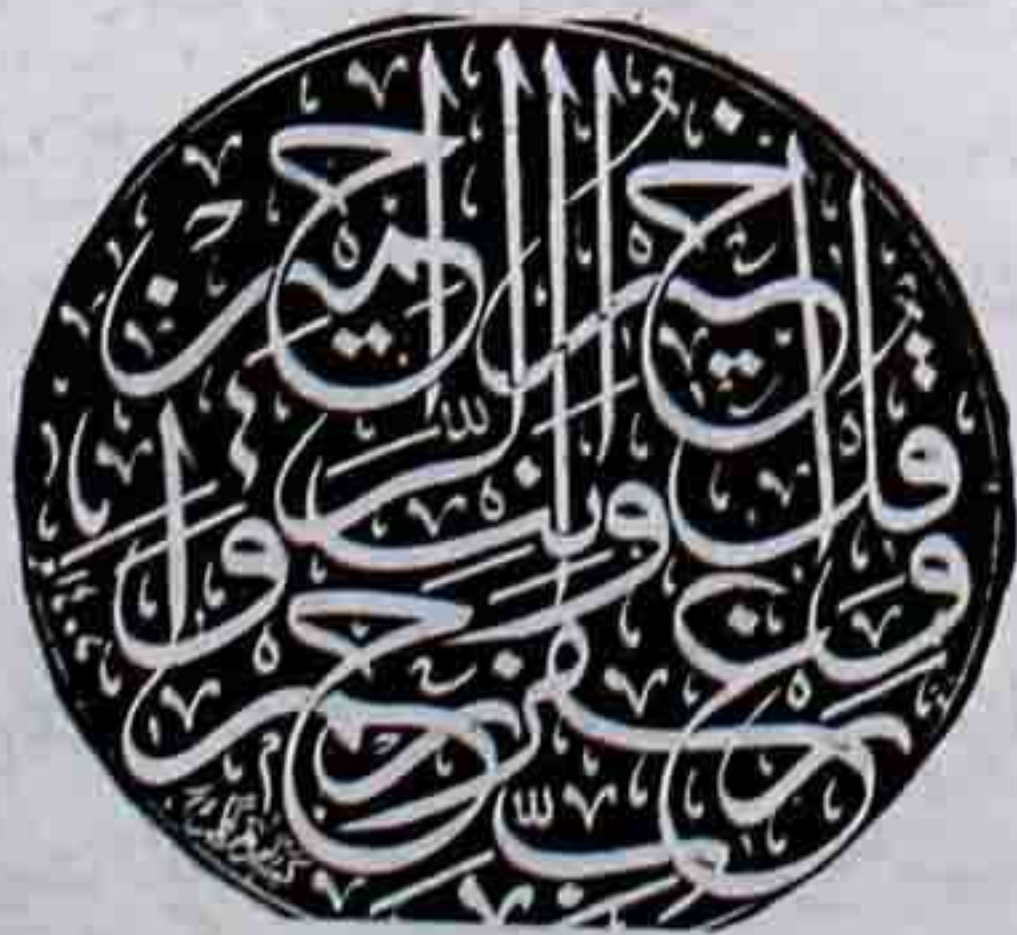 وقل رب اغفر وارحم وأنت خير الراحمين